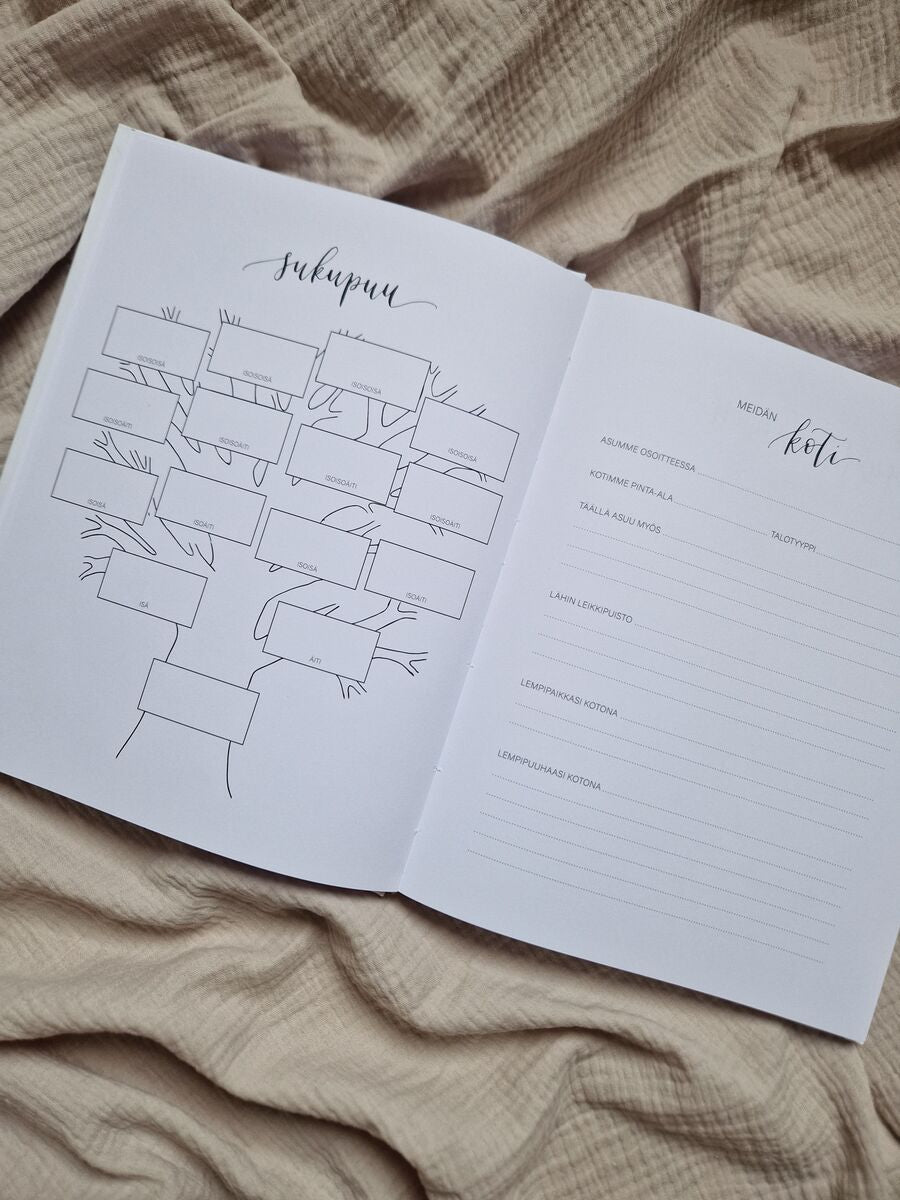 sukupuu
ISOISOISÄ
ISOISOISÄ
ISOISOISÄ
ISOISOISÄ
ISOISOÄITI
ISOISOÄITI
ISOISOÄITI
ISOISOÄITI
ISOISÄ
ISOÄITI
ISOISÄ
ISOÄITI
ISÄ
ÄITI
MEIDÄN
koti
ASUMME OSOITTEESSA
KOTIMME PINTA-ALA TALOTYYPPI
TÄÄLLÄ ASUU MYÖS
LÄHIN LEIKKIPUISTO
LEMPIPAIKKASI KOTONA
LEMPIPUUHAASI KOTONA